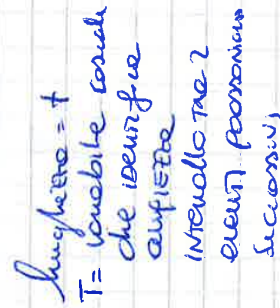 lunghezza = t
T = variabile casuale
che identifica
ampiezza
intervallo tra 2
eventi poissoniani
successivi